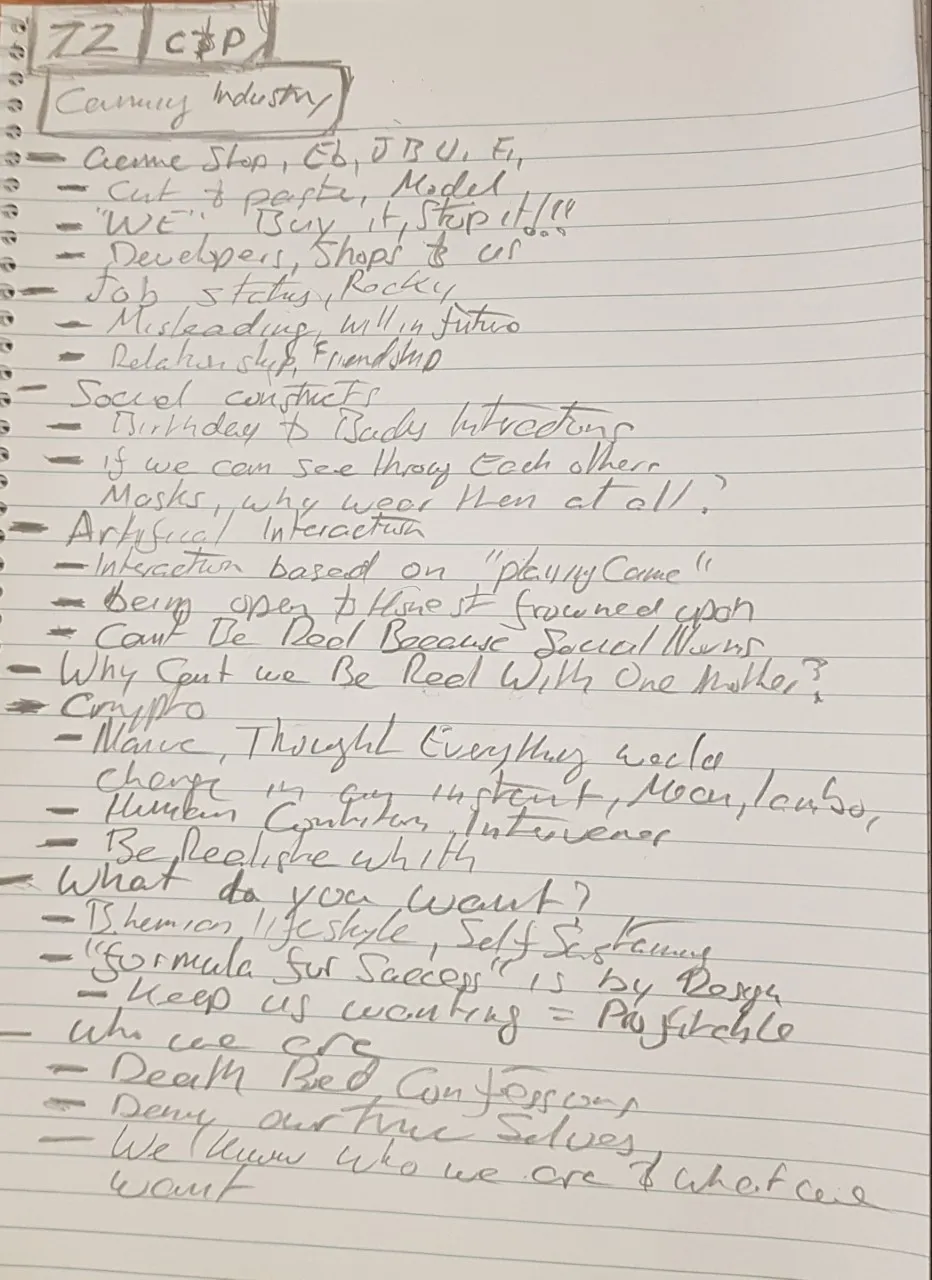 72 | C&P
Industry
- Stop, Eb, J B U, E,
- Cut & paste, Model,
- "WE", Buy it, Stop it!!!
- Developers, Shops & us
- Job status, Rocky
- Misleading, will in future
- Relationship, Friendship
- Social constructs
- Birthday & Intractions
- if we can see throug Each others
Masks, why wear them at all?
- Artifical Interaction
- Interaction based on "playing Game"
- Being open & Honest frowned upon
- Cant Be Real Because Social Norms
- Why Cant we Be Real With One Another?
- Crypto
- Naive, Thought Everything would
change in an instant, Moon, lambo,
- Human Intervenes
- Be Realistic
- What do you want?
- Bhemian lifestyle, Self Sustaining
- "formula for Success" is by Design
- Keep us wanting = Profitable
- Who we are
- Death Bed, Confessions
- Deny our True Selves,
- We Know who we are & what we
want